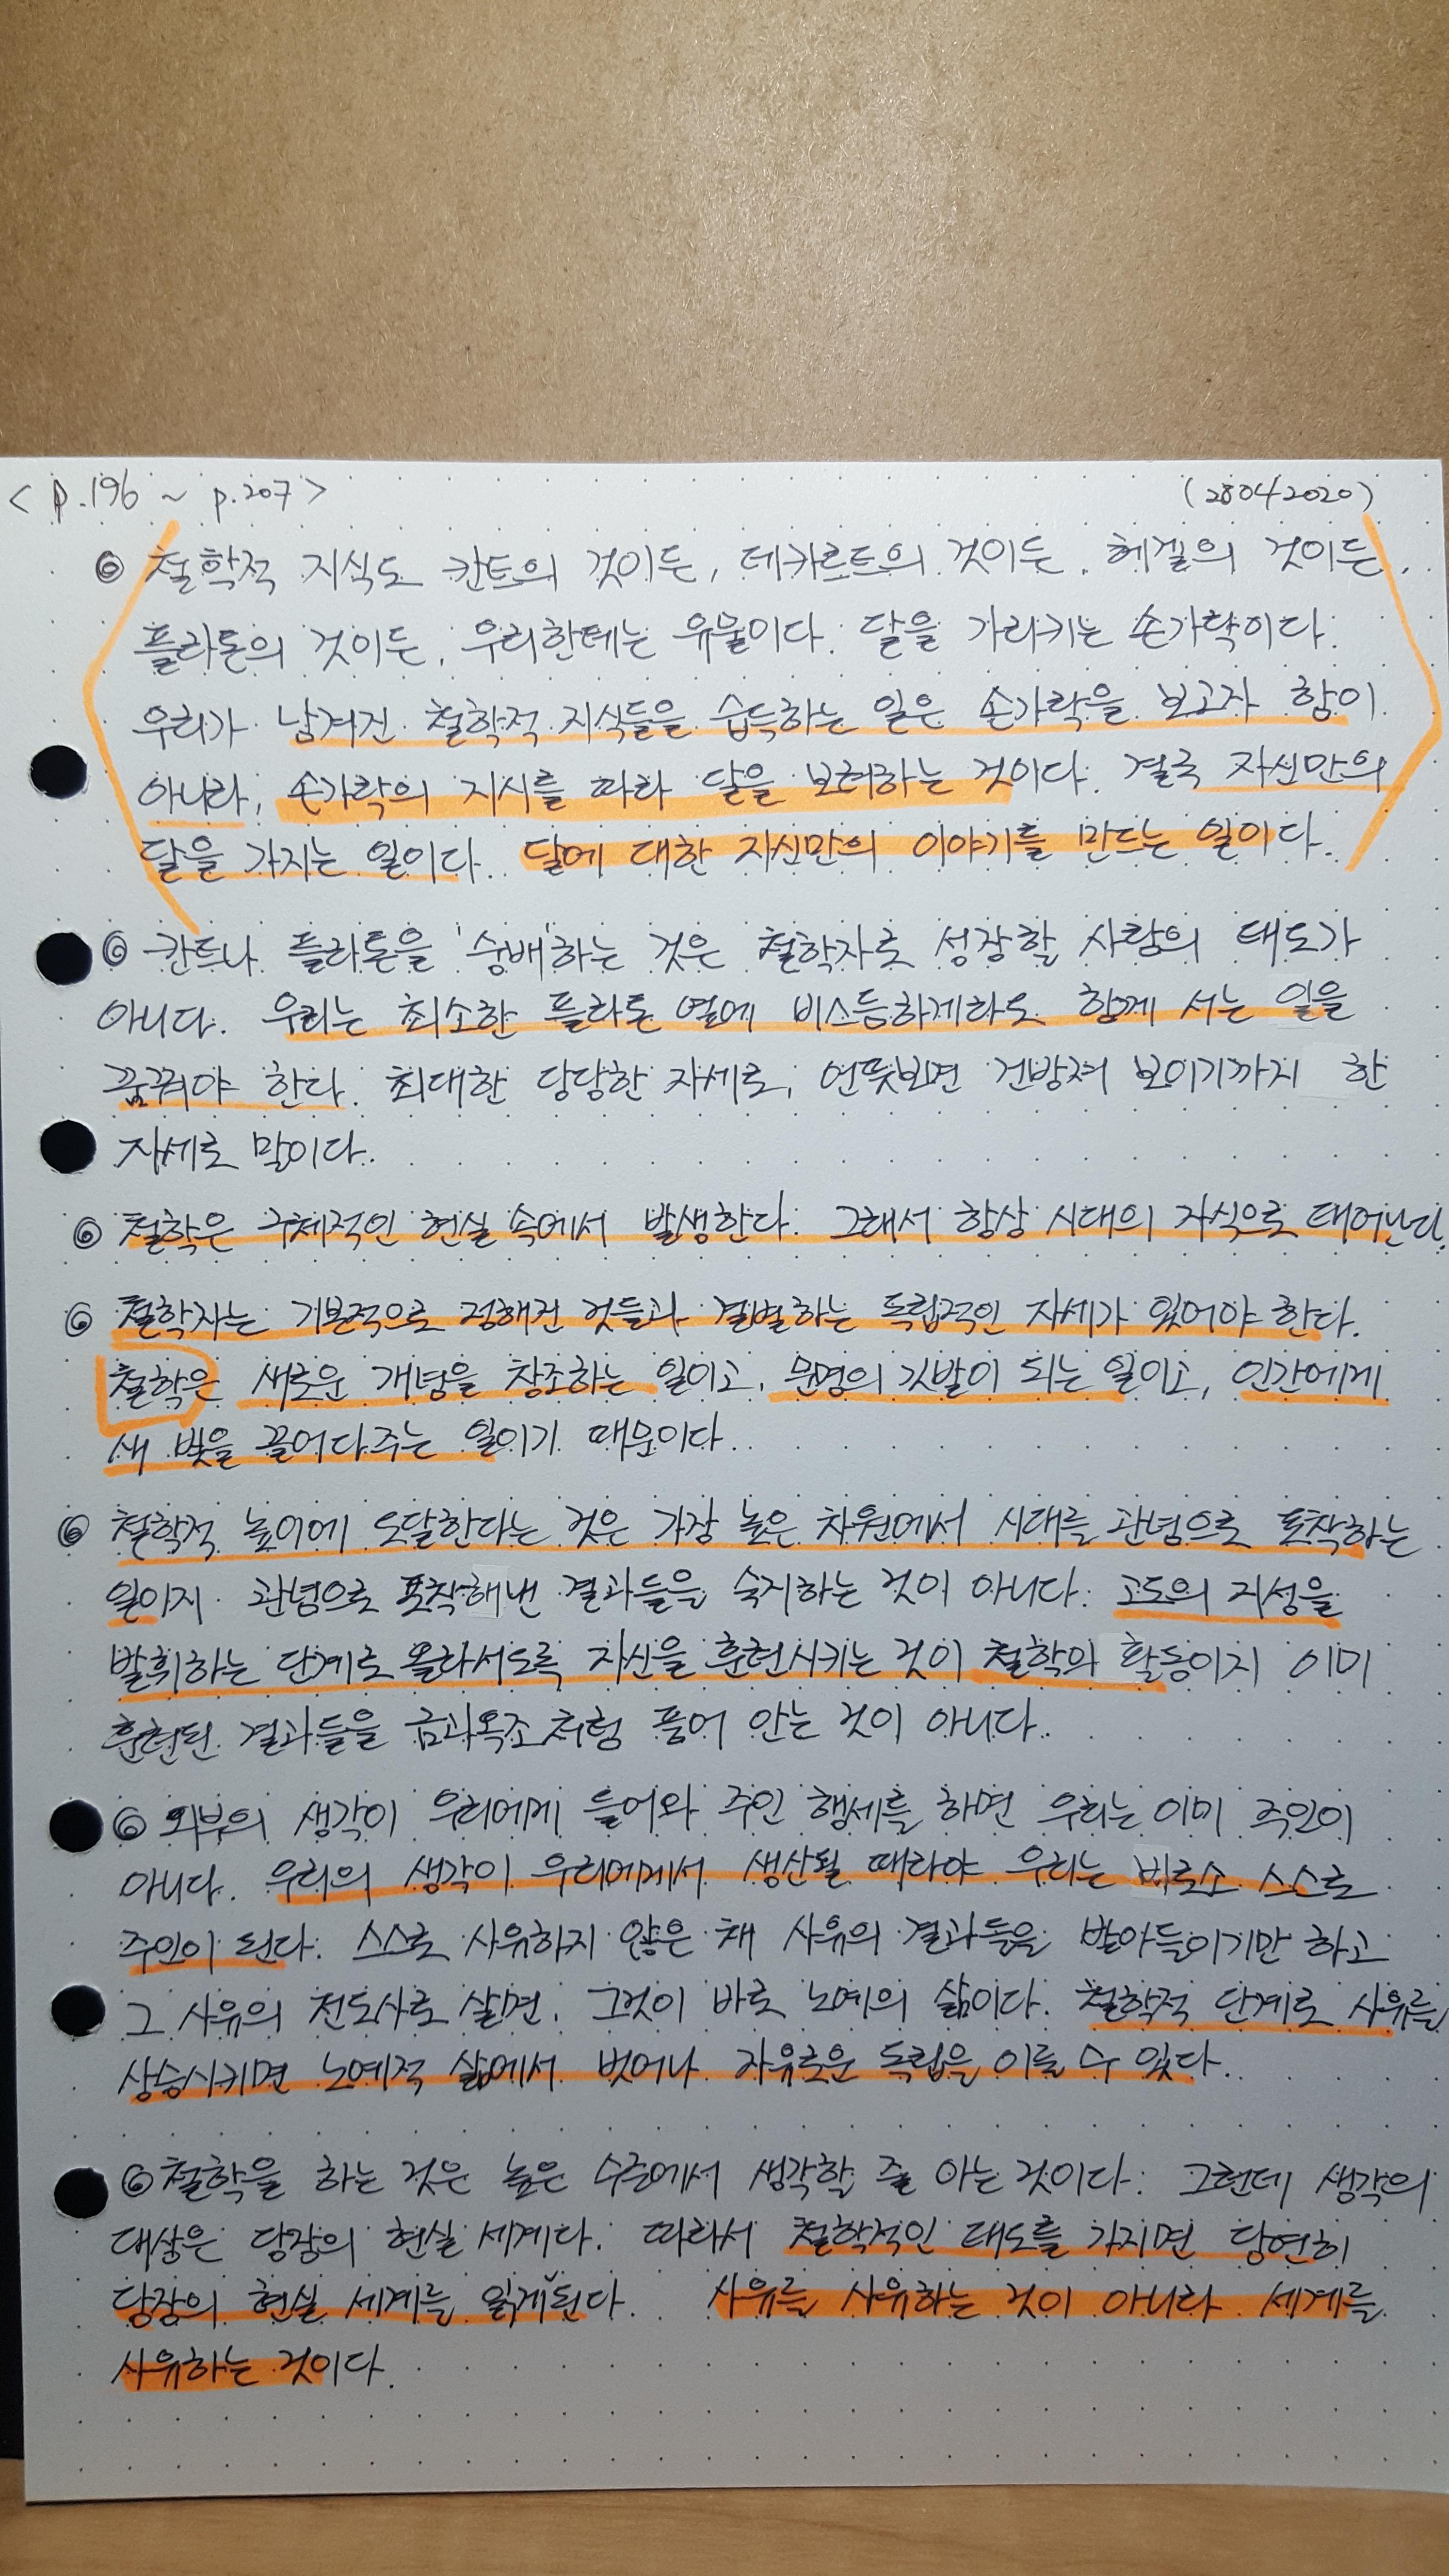 < p.196 ~ p.207 > (28042020)
◎ 철학적 지식도 칸트의 것이든, 데카르트의 것이든, 헤겔의 것이든,
플라톤의 것이든, 우리한테는 유물이다. 달을 가리키는 손가락이다.
우리가 남겨진 철학적 지식들을 습득하는 일은 손가락을 보고자 함이
아니라, 손가락의 지시를 따라 달을 보려하는 것이다. 결국 자신만의
달을 가지는 일이다. 달에 대한 자신만의 이야기를 만드는 일이다.
◎ 칸트나 플라톤을 '숭배'하는 것은 철학자로 성장할 사람의 태도가
아니다. 우리는 최소한 플라톤 옆에 비스듬하게라도 함께 서는 일을
꿈꿔야 한다. 최대한 당당한 자세로, 언뜻보면 건방져 보이기까지 한
자세로 말이다.
◎ 철학은 구체적인 현실 속에서 발생한다. 그래서 항상 시대의 자식으로 태어난다.
◎ 철학자는 기본적으로 정해진 것들과 결별하는 독립적인 자세가 있어야 한다.
철학은 새로운 개념을 창조하는 일이고, 문명의 깃발이 되는 일이고, 인간에게
새 빛을 끌어다주는 일이기 때문이다.
◎ 철학적 높이에 도달한다는 것은 가장 높은 차원에서 시대를 관념으로 포착하는
일이지 관념으로 포착해낸 결과들을 숙지하는 것이 아니다. 고도의 지성을
발휘하는 단계로 올라서도록 자신을 훈련시키는 것이 철학의 활동이지 이미
훈련된 결과들을 금과옥조처럼 품어 안는 것이 아니다.
◎ 외부의 생각이 우리에게 들어와 주인 행세를 하면 우리는 이미 주인이
아니다. 우리의 생각이 우리에게서 생산될 때라야 우리는 비로소 스스로
주인이 된다. 스스로 사유하지 않은 채 사유의 결과들을 받아들이기만 하고
그 사유의 전도사로 살면, 그것이 바로 노예의 삶이다. 철학적 단계로 사유를
상승시키면 노예적 삶에서 벗어나 자유로운 독립을 이룰 수 있다.
◎ 철학을 하는 것은 높은 수준에서 생각할 줄 아는 것이다. 그런데 생각의
대상은 당장의 현실 세계다. 따라서 철학적인 태도를 가지면 당연히
당장의 현실 세계를 읽게 된다. 사유를 사유하는 것이 아니라 세계를
사유하는 것이다.